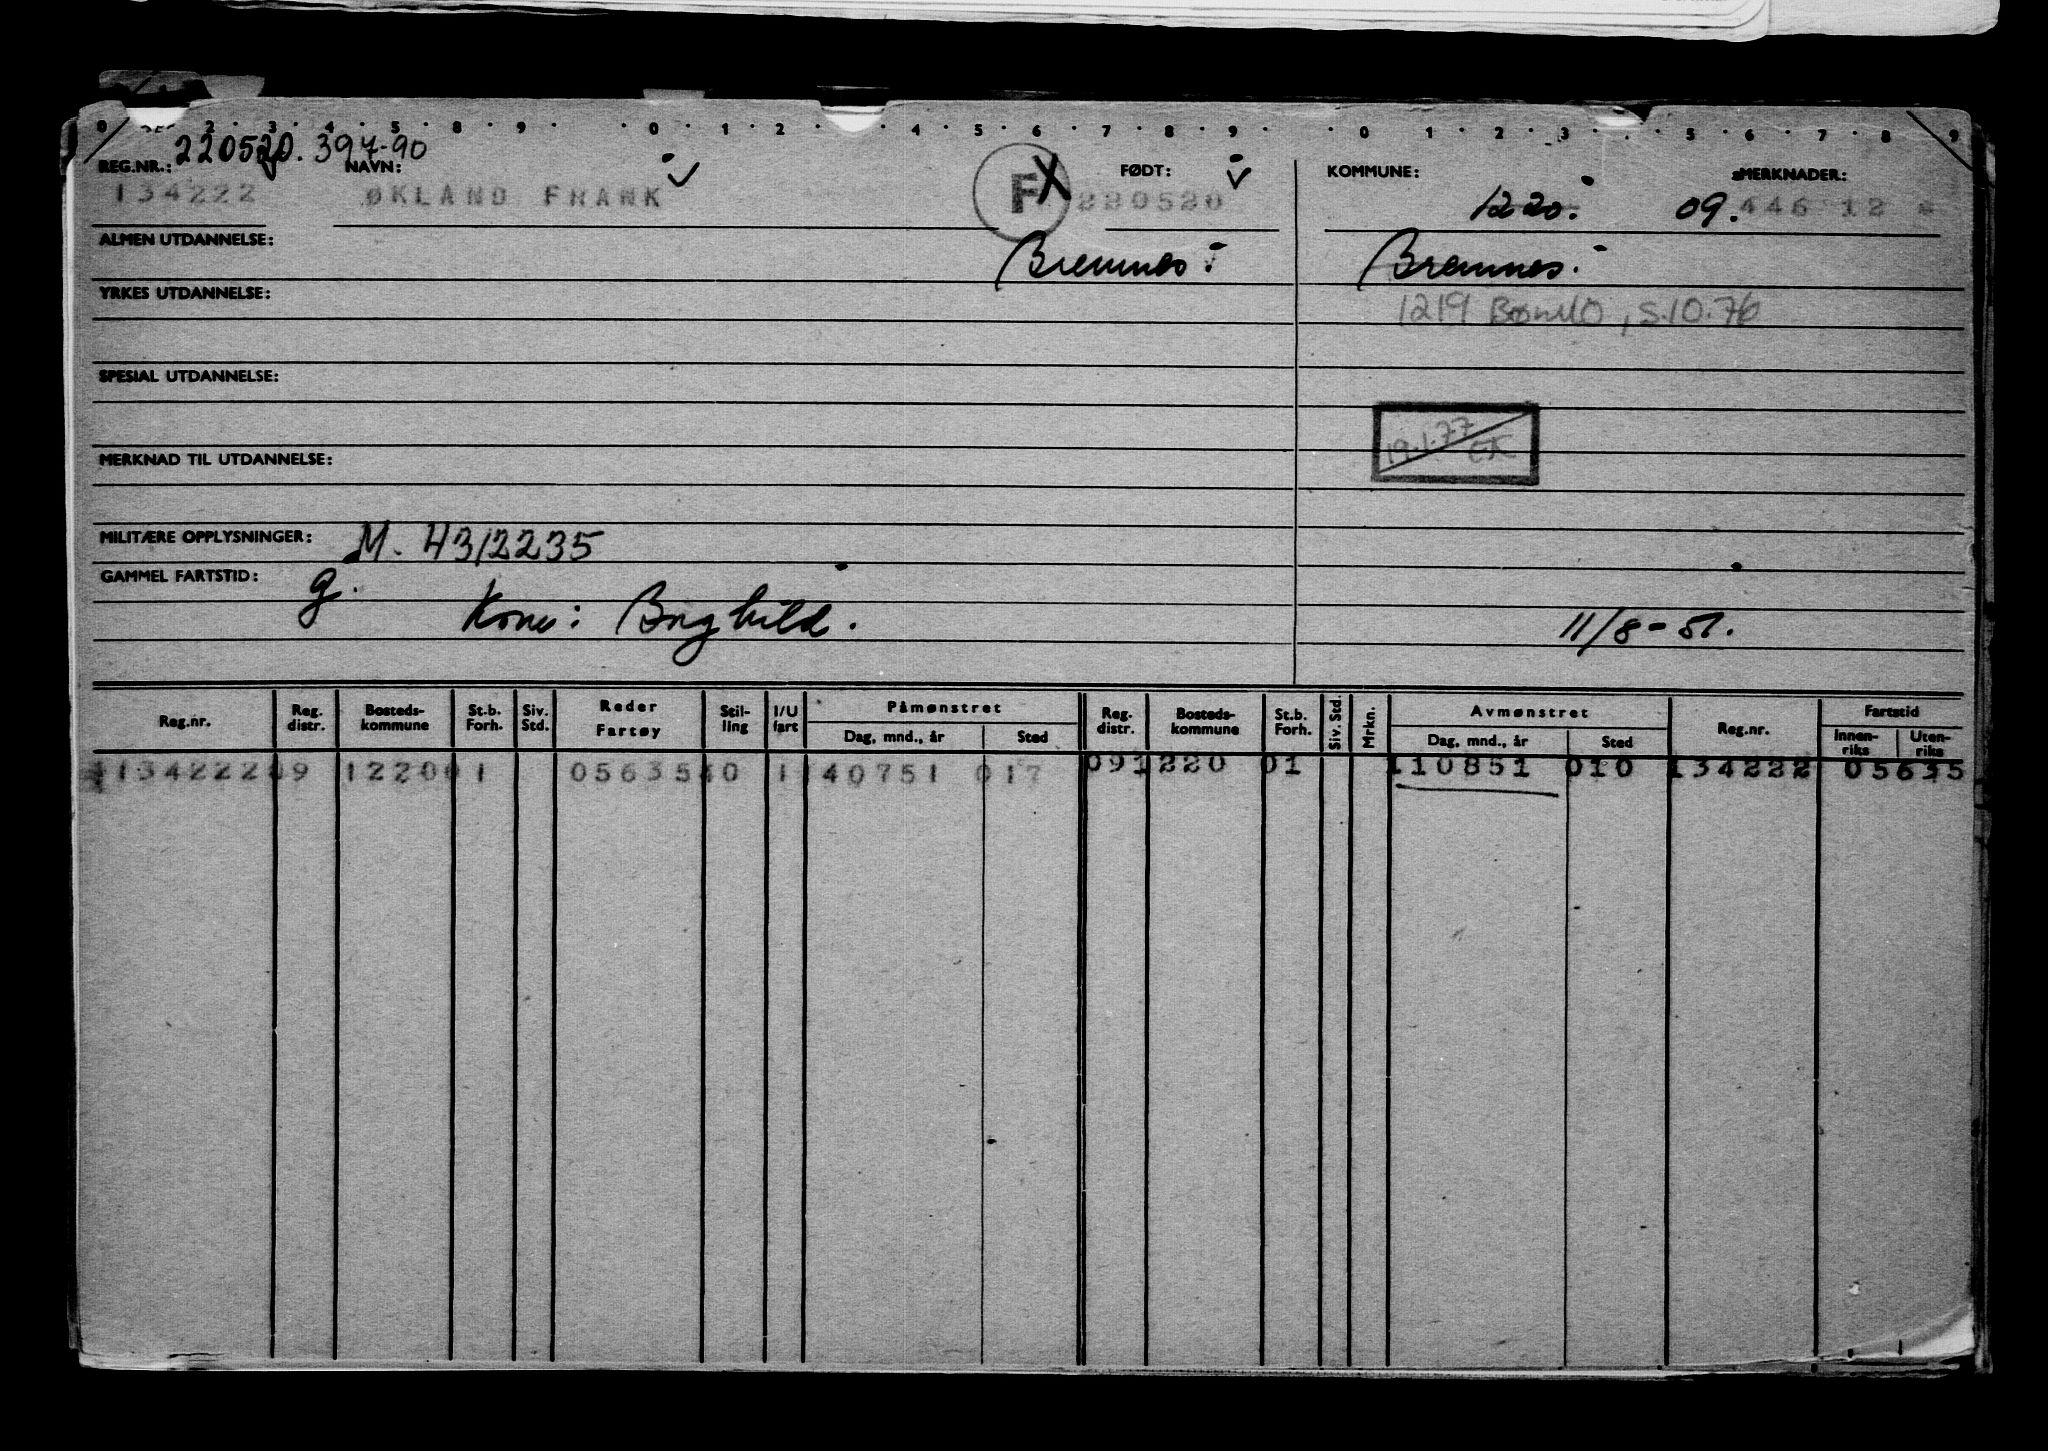 220520. 397-90
REG.NR.: NAVN: FØDT: KOMMUNE: MERKNADER:
134222 ØKLAND FRANK F X 220520 1220. 09. 446 12
ALMEN UTDANNELSE: Bremnes. Bremnes.
YRKES UTDANNELSE: 1219 Bømlo, S.10.76
SPESIAL UTDANNELSE:
19.1.77 EK
MERKNAD TIL UTDANNELSE:
MILITÆRE OPPLYSNINGER: M. 4312235
GAMMEL FARTSTID: g.
Kone: Borghild. 11/8-51.
Reg.nr. Reg. distr. Bosteds-kommune St.b. Forh. Siv. Std. Reder Fartøy Stil-ling I/U fart Påmønstret Dag, mnd., år Sted Reg. distr. Bosteds-kommune St.b. Forh. Siv. Std. Mrkn. Avmønstret Dag, mnd., år Sted Reg.nr. Fartstid Innen-riks Uten-riks
134222 09 1220 01 05635 40 1 140751 017 09 1220 01 110851 010 134222 05635